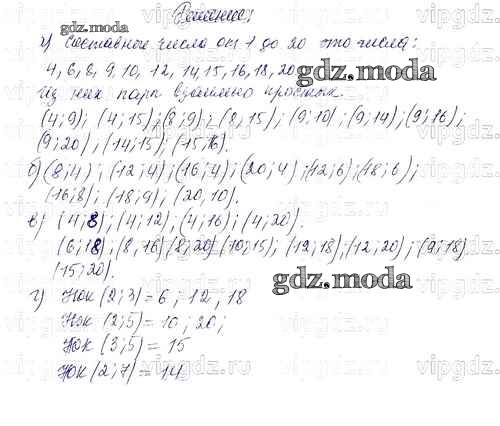 Решение:
а) Составные числа от 1 до 20 это числа:
4, 6, 8, 9, 10, 12, 14, 15, 16, 18, 20
gdz.moda
Из них пары взаимно простых.
(4; 9); (4; 15); (8; 9); (8, 15); (9; 10); (9; 14); (9; 16);
(9; 20); (14; 15); (15; 16).
б) (8; 4); (12; 4); (16; 4); (20; 4); (12; 6); (18; 6);
(16; 8); (18; 9); (20, 10).
в) (4; 8); (4; 12); (4; 16); (4; 20).
(6; 18); (8, 16) (8; 20) (10; 15); (12, 18); (12; 20); (9; 18)
(15; 20).
gdz.moda
г) Нок (2; 3) = 6; 12, 18
Нок (2; 5) = 10; 20;
Нок (3; 5) = 15
Нок (2; 7) = 14
gdz.moda